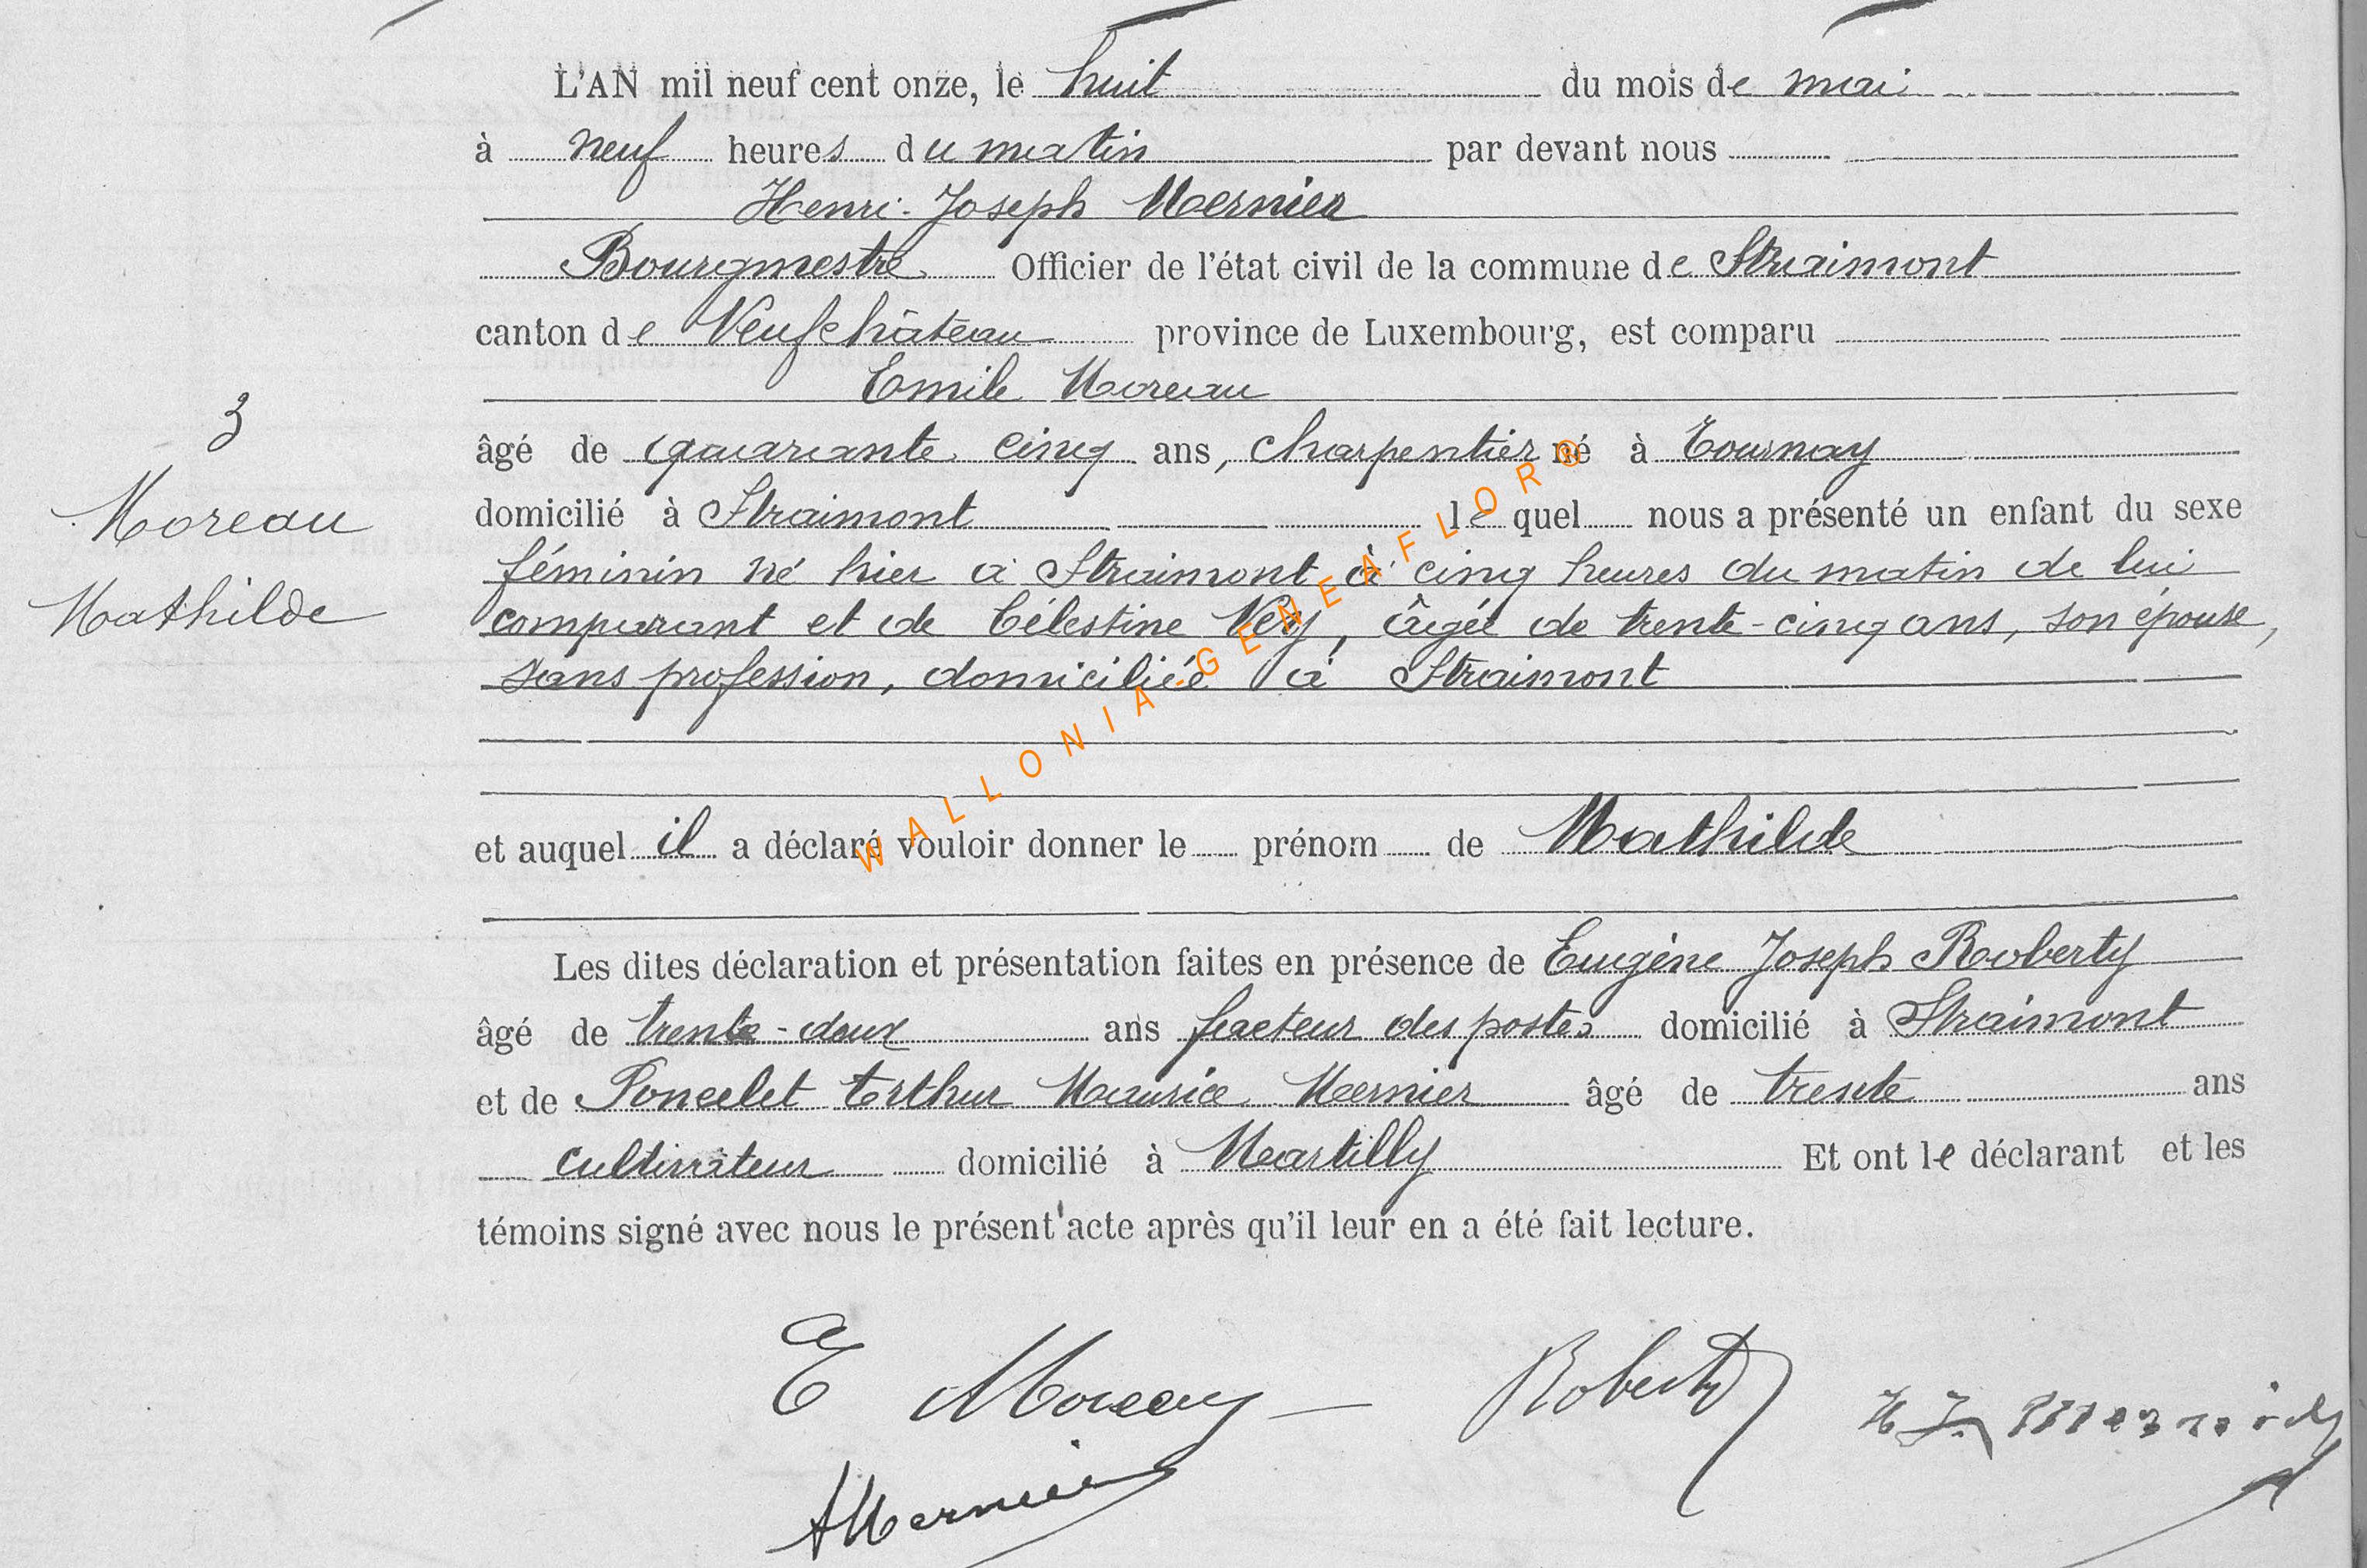 L'AN mil neuf cent onze, le huit du mois de mai
à neuf heures du matin par devant nous
Henri-Joseph Mernier
Bourgmestre Officier de l'état civil de la commune de Straimont
canton de Neufchâteau province de Luxembourg, est comparu
Emile Moreau
3
âgé de quarante cinq ans, charpentier né à Tournay
Moreau
domicilié à Straimont lequel nous a présenté un enfant du sexe
féminin né hier à Straimont à cinq heures du matin de lui
Mathilde
comparant et de Célestine Very, âgée de trente-cinq ans, son épouse,
sans profession, domiciliée à Straimont
et auquel il a déclaré vouloir donner le prénom de Mathilde
Les dites déclaration et présentation faites en présence de Eugène Joseph Roberty
âgé de trente-deux ans facteur des postes domicilié à Straimont
et de Poncelet Arthur Maurice Mernier âgé de trente ans
cultivateur domicilié à Martilly Et ont le déclarant et les
témoins signé avec nous le présent acte après qu'il leur en a été fait lecture.
E Moreau Roberty H J Mernier
A Mernier
WALLONIA-GENEAFLOR®